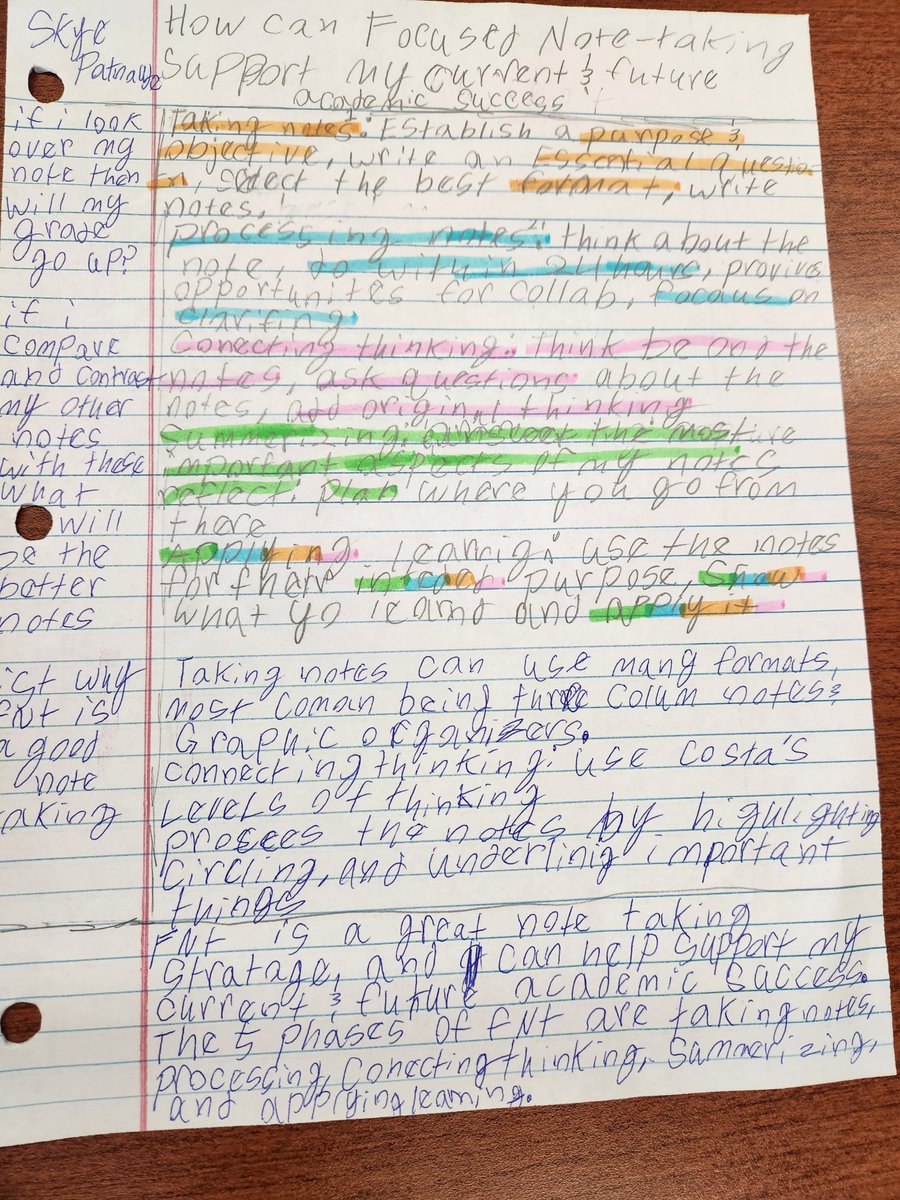 Skye
How can Focused Note-taking
Support my current & future
academic success
if i look
over my
note then
will my
grade
go up?
if i
compare
and contrast
my other
notes
with these
what
will
be the
better
notes
ist why
FNT is
a good
note
aking
Taking notes: Establish a purpose &
objective, write an Essential Questio
n, select the best format, write
notes.
processing notes: think about the
note, do with in 24 hours, provive
opportunites for collab, focaus on
clarifing
Conecting thinking: think be ond the
notes, ask questions about the
notes, add original thinking
Summerizing: the most
important aspects of my notes
reflect. Plan where you go from
there
Applying learnig: use the notes
for thair purpose, Show
what yo learnd and apply it
Taking notes can use many formats,
most coman being three colum notes &
Graphic organizers.
connecting thinking: use costa's
Levels of thinking
procees the notes by higulighting
Circling, and underlinig important
things
FNT is a great note taking
Stratage, and can help support my
current & future academic success.
The 5 phases of FNT are taking notes,
processing, Conecting thinking, Summerizing,
and applying learning.